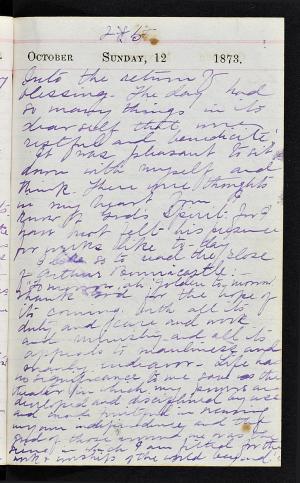 285
October Sunday, 12 1873.
Into the return of
blessing. The day had
so many things in its
dear self that were
restful and benedicite.
It was pleasant to sit
down with myself and
think. There were thoughts
in my heart
know of God's Spirit. For I
have not felt his presence
for weeks like to-day.
so to read the close
of Arthur Bonnicastle:—
"Tomorrow, ah! golden to-morrow
thank God for the hope of
its coming, with all its
duty and care and work
and ministry and all its
appeals to manliness and
manly endeavor. Life has
no significance to me save as the
theater in which my powers are
developed and disciplined by use
and made fruitful in securing
my own independence and the
good of those around me or as the
scene in which I am fitted for the
work & worship of the world beyond."